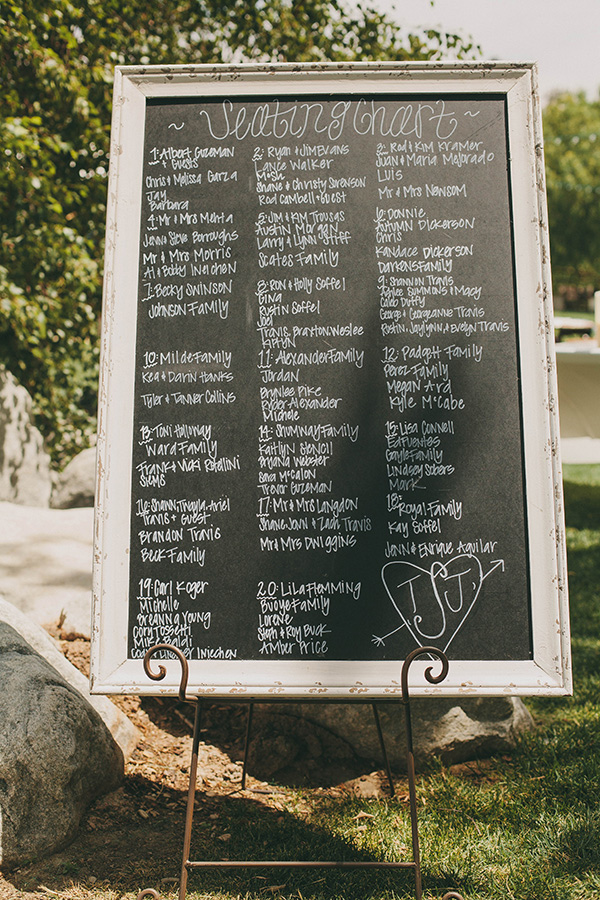 ~ Seating Chart ~
1: Albert Guzeman
+ Guests
Chris + Melissa Garza
Jay
Barbara
4: Mr + Mrs Mehta
Jann + Steve Borroughs
Mr + Mrs Morris
Al + Bobby Ineichen
7: Becky Swinson
Johnson Family
10: Milde Family
Ken and Darin Hanks
Tyler + Tanner Collins
13: Toni Holloway
Ward Family
Frank + Vicki Ratellini
Siems
16: Shawn, Twyla, Ariel
Travis + Guest
Brandon Travis
Beck Family
19: Carl Koger
Michelle
Breanna Young
Cory Tossetti
Mike
Ineichen
2: Ryan + Jim Evans
Lance Walker
Misli
Shane + Christy Sorenson
Rod Cambell + Guest
5: Jim + Kim Tousas
Austin Morgan
Larry + Lynn Stiff
Scates Family
8: Ron + Holly Soffel
Gina
Rustin Soffel
Joel
Travis, Braxton, Weslee
11: Alexander Family
Jordan
Brynlee Pike
Ryder Alexander
Michele
14: Shumway Family
Kaitlyn Stencil
Briana Webster
Sara McCalon
Trevor Guzeman
17: Mr + Mrs Langdon
Shane, Jann + Zach Travis
Mr + Mrs Dwiggins
20: Lila Flemming
Buoye Family
Lorene
Steph + Roy Buck
Amber Price
3: Rod + Kim Kramer
Juan + Maria Malorado
Luis
Mr + Mrs Newsom
6: Connie
Autumn Dickerson
Chris
Kandace Dickerson
Darkens Family
9: Shannon Travis
Aylee Simmons + Macy
Caleb Duffy
George + Georgeanne Travis
Rustin, Jaylynn, + Evelyn Travis
12: Padgett Family
Perez Family
Megan Ard
Kyle McCabe
15: Lisa Connell
Ed Fuentes
Gayle Family
Lindsey Sobers
Mark
18:
Royal Family
Kay Soffel
Jann + Enrique Aguilar
T & J